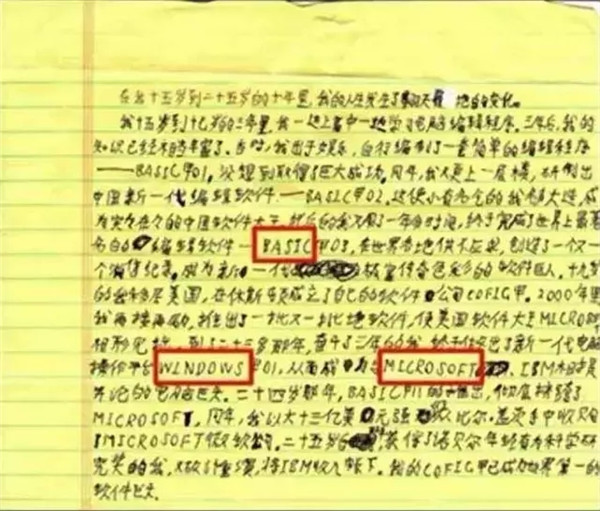 在我十五岁到二十五岁的十年里,我的人生发生了翻天覆地的变化。
我十五岁到十七岁的三年里,我一边上高中一边学习电脑编辑程序。三年后,我的
知识已经相当丰富了。当时,我出于娱乐,自行编制了一套简单的编辑程序
——BASIC甲01,没想到取得了巨大成功。同年,我又更上一层楼,研制出
中国新一代编辑软件——BASIC甲02。这使小有名气的我
成为实实在在的中国软件大王。然后的我又用了一年的时间,终于完成了世界上最著
名的编辑软件—BASIC甲03,在世界各地供不应求,创造了一个又一
个销售纪录。成为新一代极富传奇色彩的软件巨人。十九岁
的我移居美国,在休斯顿成立了自己的软件公司COFIG甲。2000年里
我再接再励,推出了一批又一批软件,使美国软件大王MICRO
相形见拙。到了二十三岁那年,奋斗了三年的我终于推出了新一代电脑
操作平台WINDOWS甲01,从而成为与MICROSOFT、IBM相提
并论的电脑巨头。二十四岁那年,BASIC甲11的推出,彻底摧毁了
MICROSOFT,同年,我以六十三亿美元强从比尔·盖茨手中收购
了MICROSOFT微软公司。二十五岁,获得了诺贝尔年轻有为科学研
究奖的我,又故计重演,将IBM收入帐下。我的COFIG甲已成为世界第一的
软件巨头。